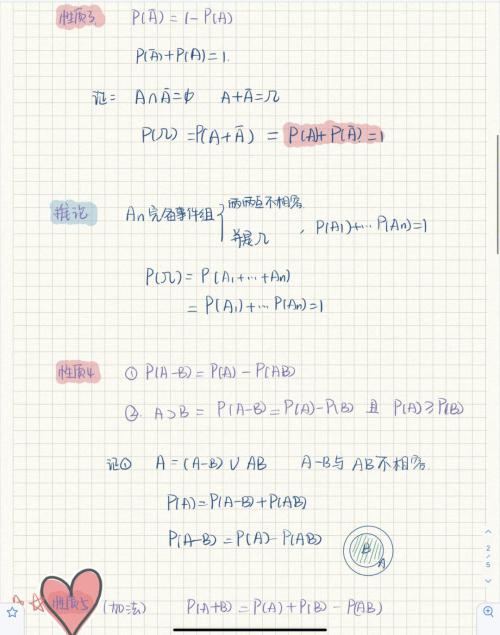 性质3 P(Ā)=1-P(A)
P(Ā)+P(A)=1.
证= A∩Ā=φ A+Ā=Ω
P(Ω)=P(A+Ā)=P(A)+P(Ā)=1
推论 An完备事件组{两两互不相容
并是Ω , P(A₁)+…P(An)=1
P(Ω)=P(A₁+…+An)
=P(A₁)+…P(An)=1
性质4 ① P(A-B)=P(A)-P(AB)
②. A⊃B= P(A-B)=P(A)-P(B) 且 P(A)≥P(B)
证① A=(A-B)∪AB A-B与AB不相容.
P(A)=P(A-B)+P(AB)
P(A-B)=P(A)-P(AB)
B
A
2
/
5
性质5 (加法) P(A+B)=P(A)+P(B)-P(AB)